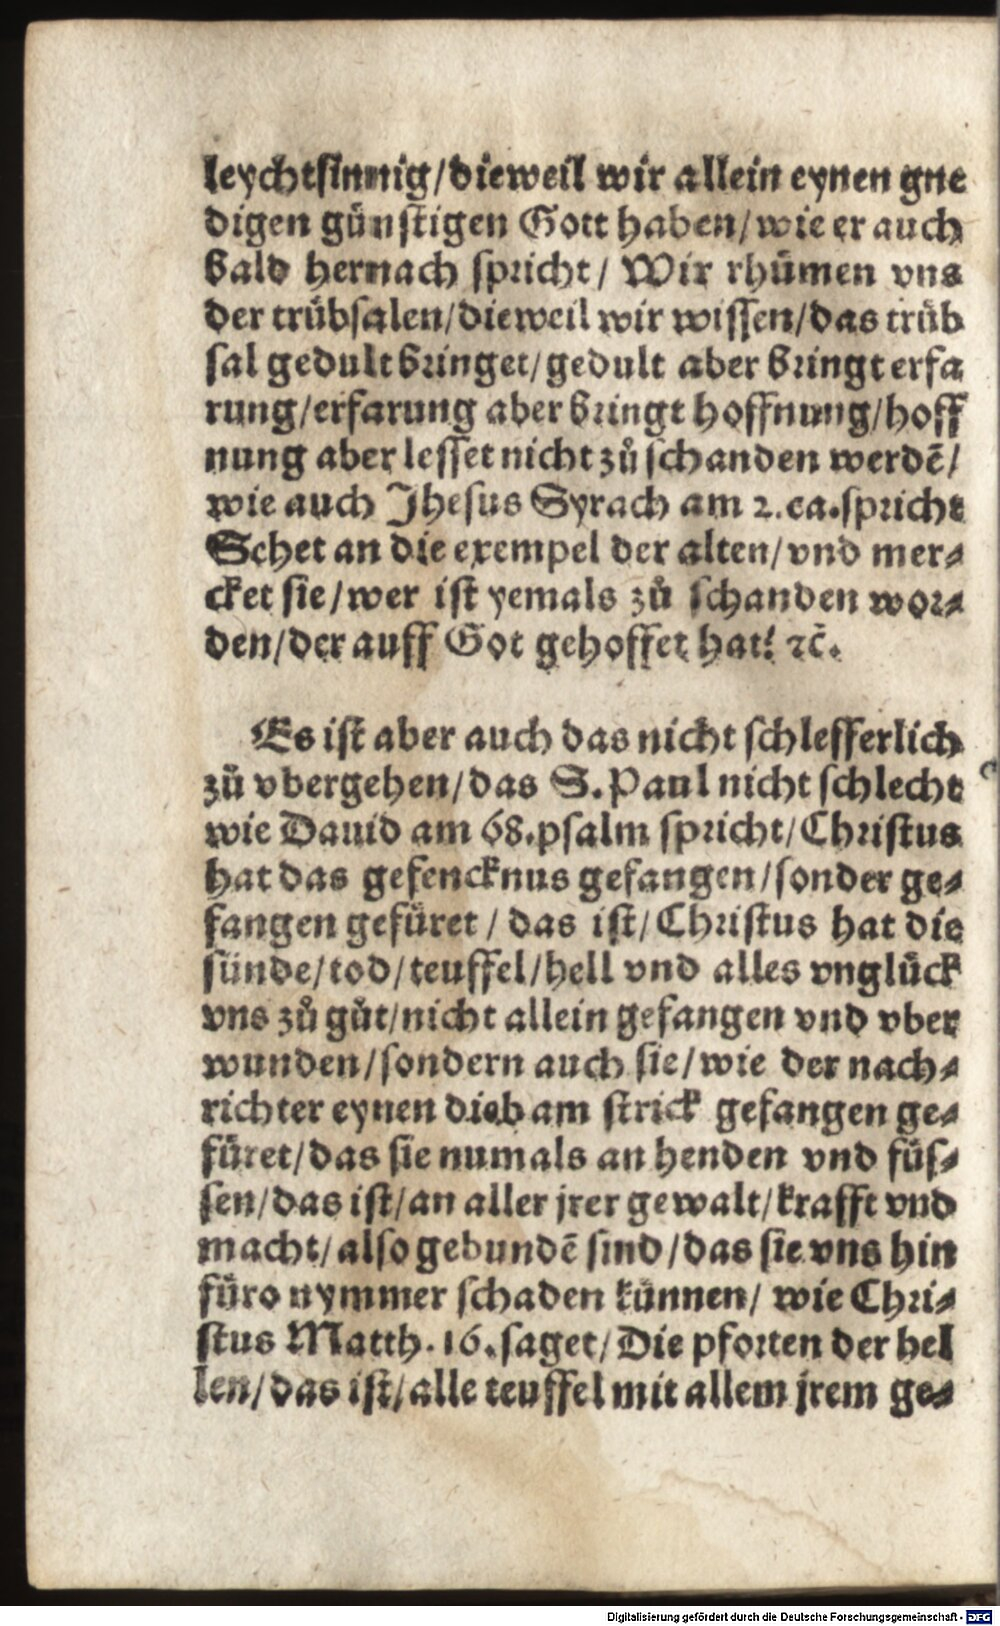 leychtsinnig/dieweil wir allein eynen gne
digen günstigen Gott haben/wie er auch
bald hernach spricht/ Wir rhümen vns
der trübsalen/dieweil wir wissen/das trüb
sal gedult bringet/gedult aber bringt erfa
rung/erfarung aber bringt hoffnung/hoff
nung aber lesset nicht zů schanden werdē/
wie auch Jhesus Syrach am 2.ca.spricht
Sehet an die exempel der alten/vnd mer⸗
cket sie/wer ist yemals zů schanden wor⸗
den/der auff Got gehoffet hat? ⁊c̄.
Es ist aber auch das nicht schlefferlich
zů vbergehen/das S.Paul nicht schlecht
wie Dauid am 68.psalm spricht/Christus
hat das gefencknus gefangen/sonder ge⸗
fangen gefüret/ das ist/Christus hat die
sünde/tod/teuffel/hell vnd alles vnglück
vns zů gůt/nicht allein gefangen vnd vber
wunden/sondern auch sie/wie der nach⸗
richter eynen dieb am strick gefangen ge⸗
füret/das sie numals an henden vnd füs⸗
sen/das ist/an aller jrer gewalt/krafft vnd
macht/also gebundē sind/das sie vns hin
füro nymmer schaden künnen/ wie Chri⸗
stus Matth.16.saget/Die pforten der hel
len/das ist/alle teuffel mit allem jrem ge⸗
Digitalisierung gefördert durch die Deutsche Forschungsgemeinschaft - DFG